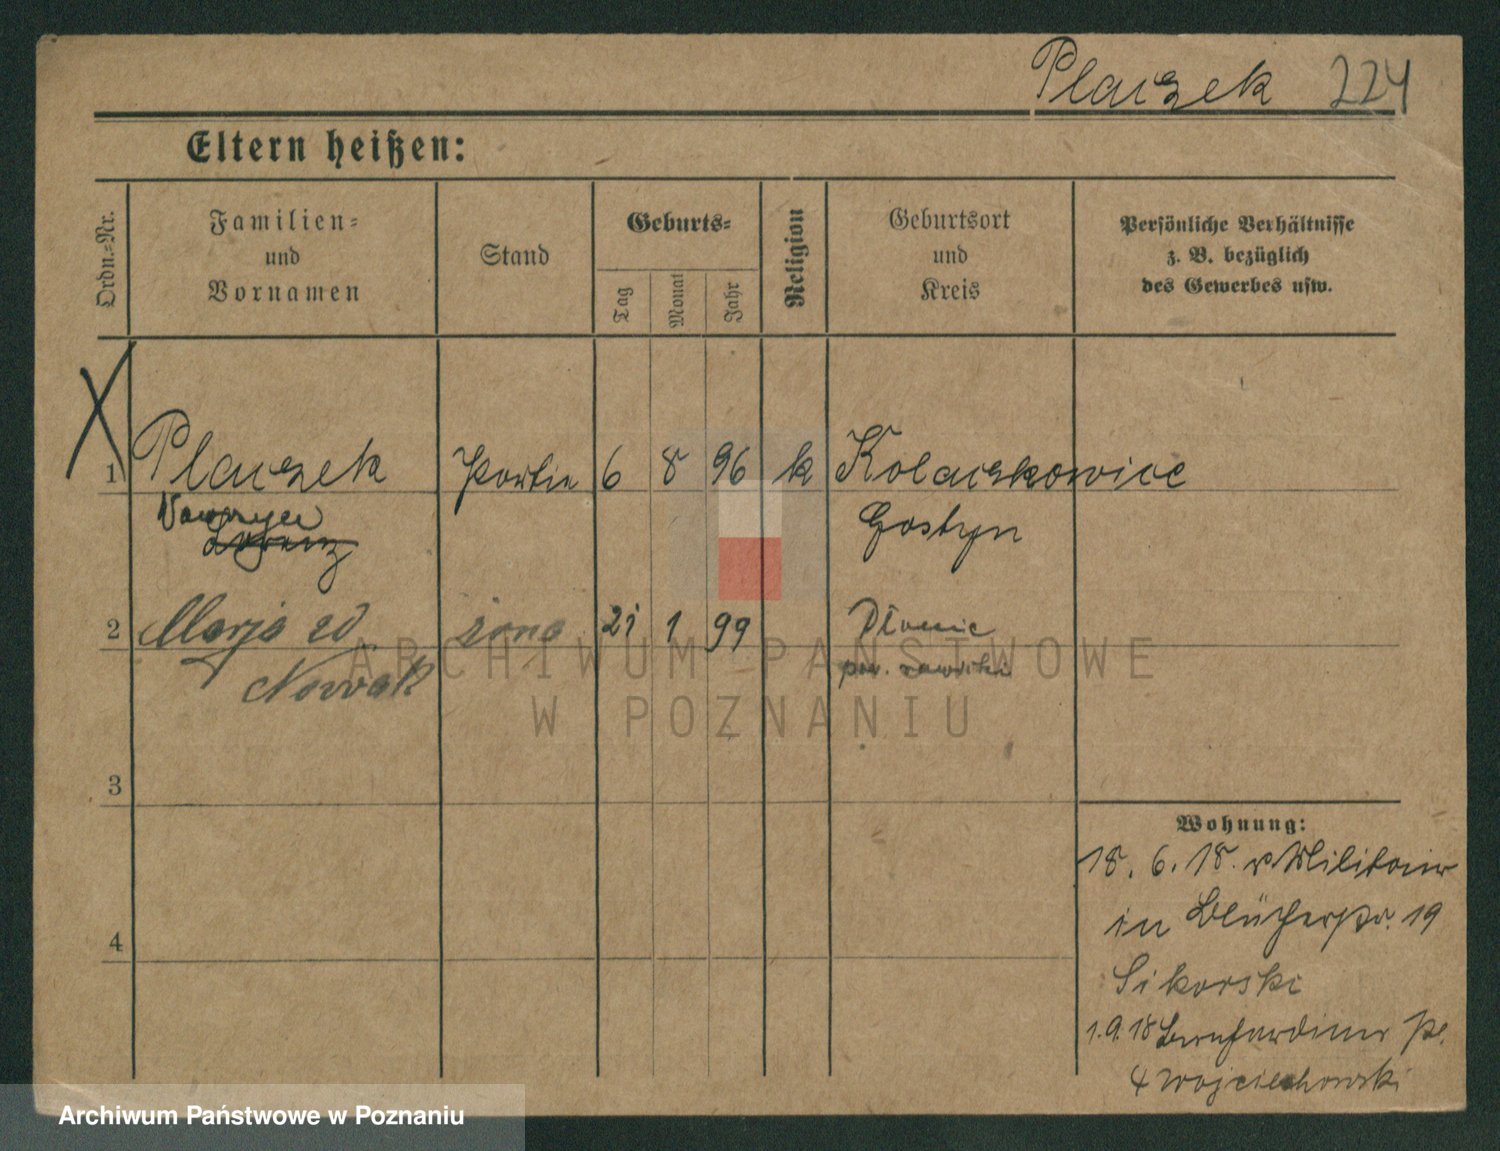 Placzek 224
Eltern heißen:
Ordn.-Nr.
Familien-
und
Vornamen
Stand
Geburts-
Tag
Monat
Jahr
Religion
Geburtsort
und
Kreis
Persönliche Verhältnisse
z. B. bezüglich
des Gewerbes usw.
1 Placzek 6 8 96 k Kolaczkowice
Wawrzyn
Lorenz
Gostyn
2 Marja żona 21 1 99
Nowak
pow. rawicki
3
4
Wohnung:
18. 6. 18. v Militair
in Blücherstr. 19
Sikorski
1.9.18 Bernhardiner Pl.
4 Wojciechowski
ARCHIWUM PAŃSTWOWE
W POZNANIU
Archiwum Państwowe w Poznaniu